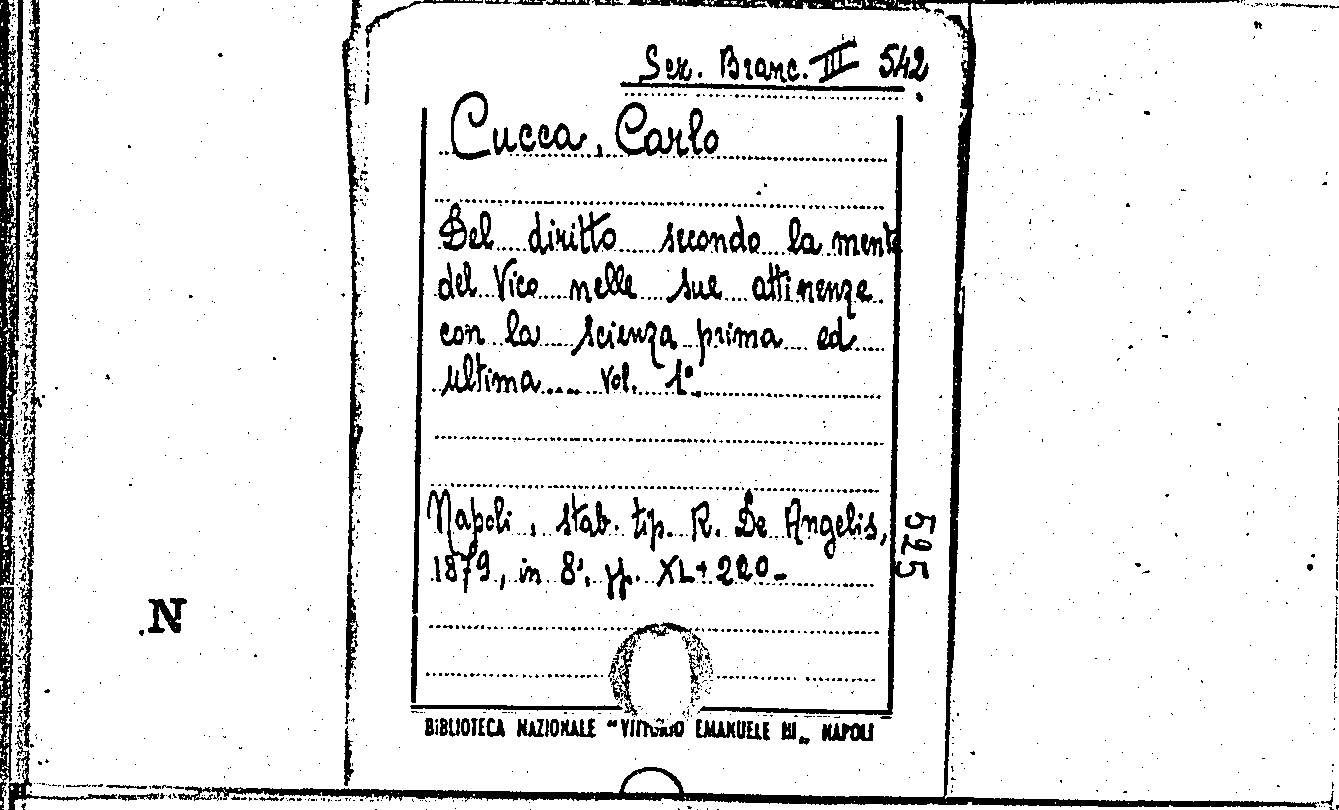 Sez. Branc. III 542
Cucca, Carlo
Del diritto secondo la mente
del Vico nelle sue attinenze
con la scienza prima ed
ultima.... Vol. 1°.
Napoli, stab. tip. R. De Angelis,
1879, in 8°, pp. XL+220-
525
N
BIBLIOTECA NAZIONALE "VITTORIO EMANUELE III„ NAPOLI